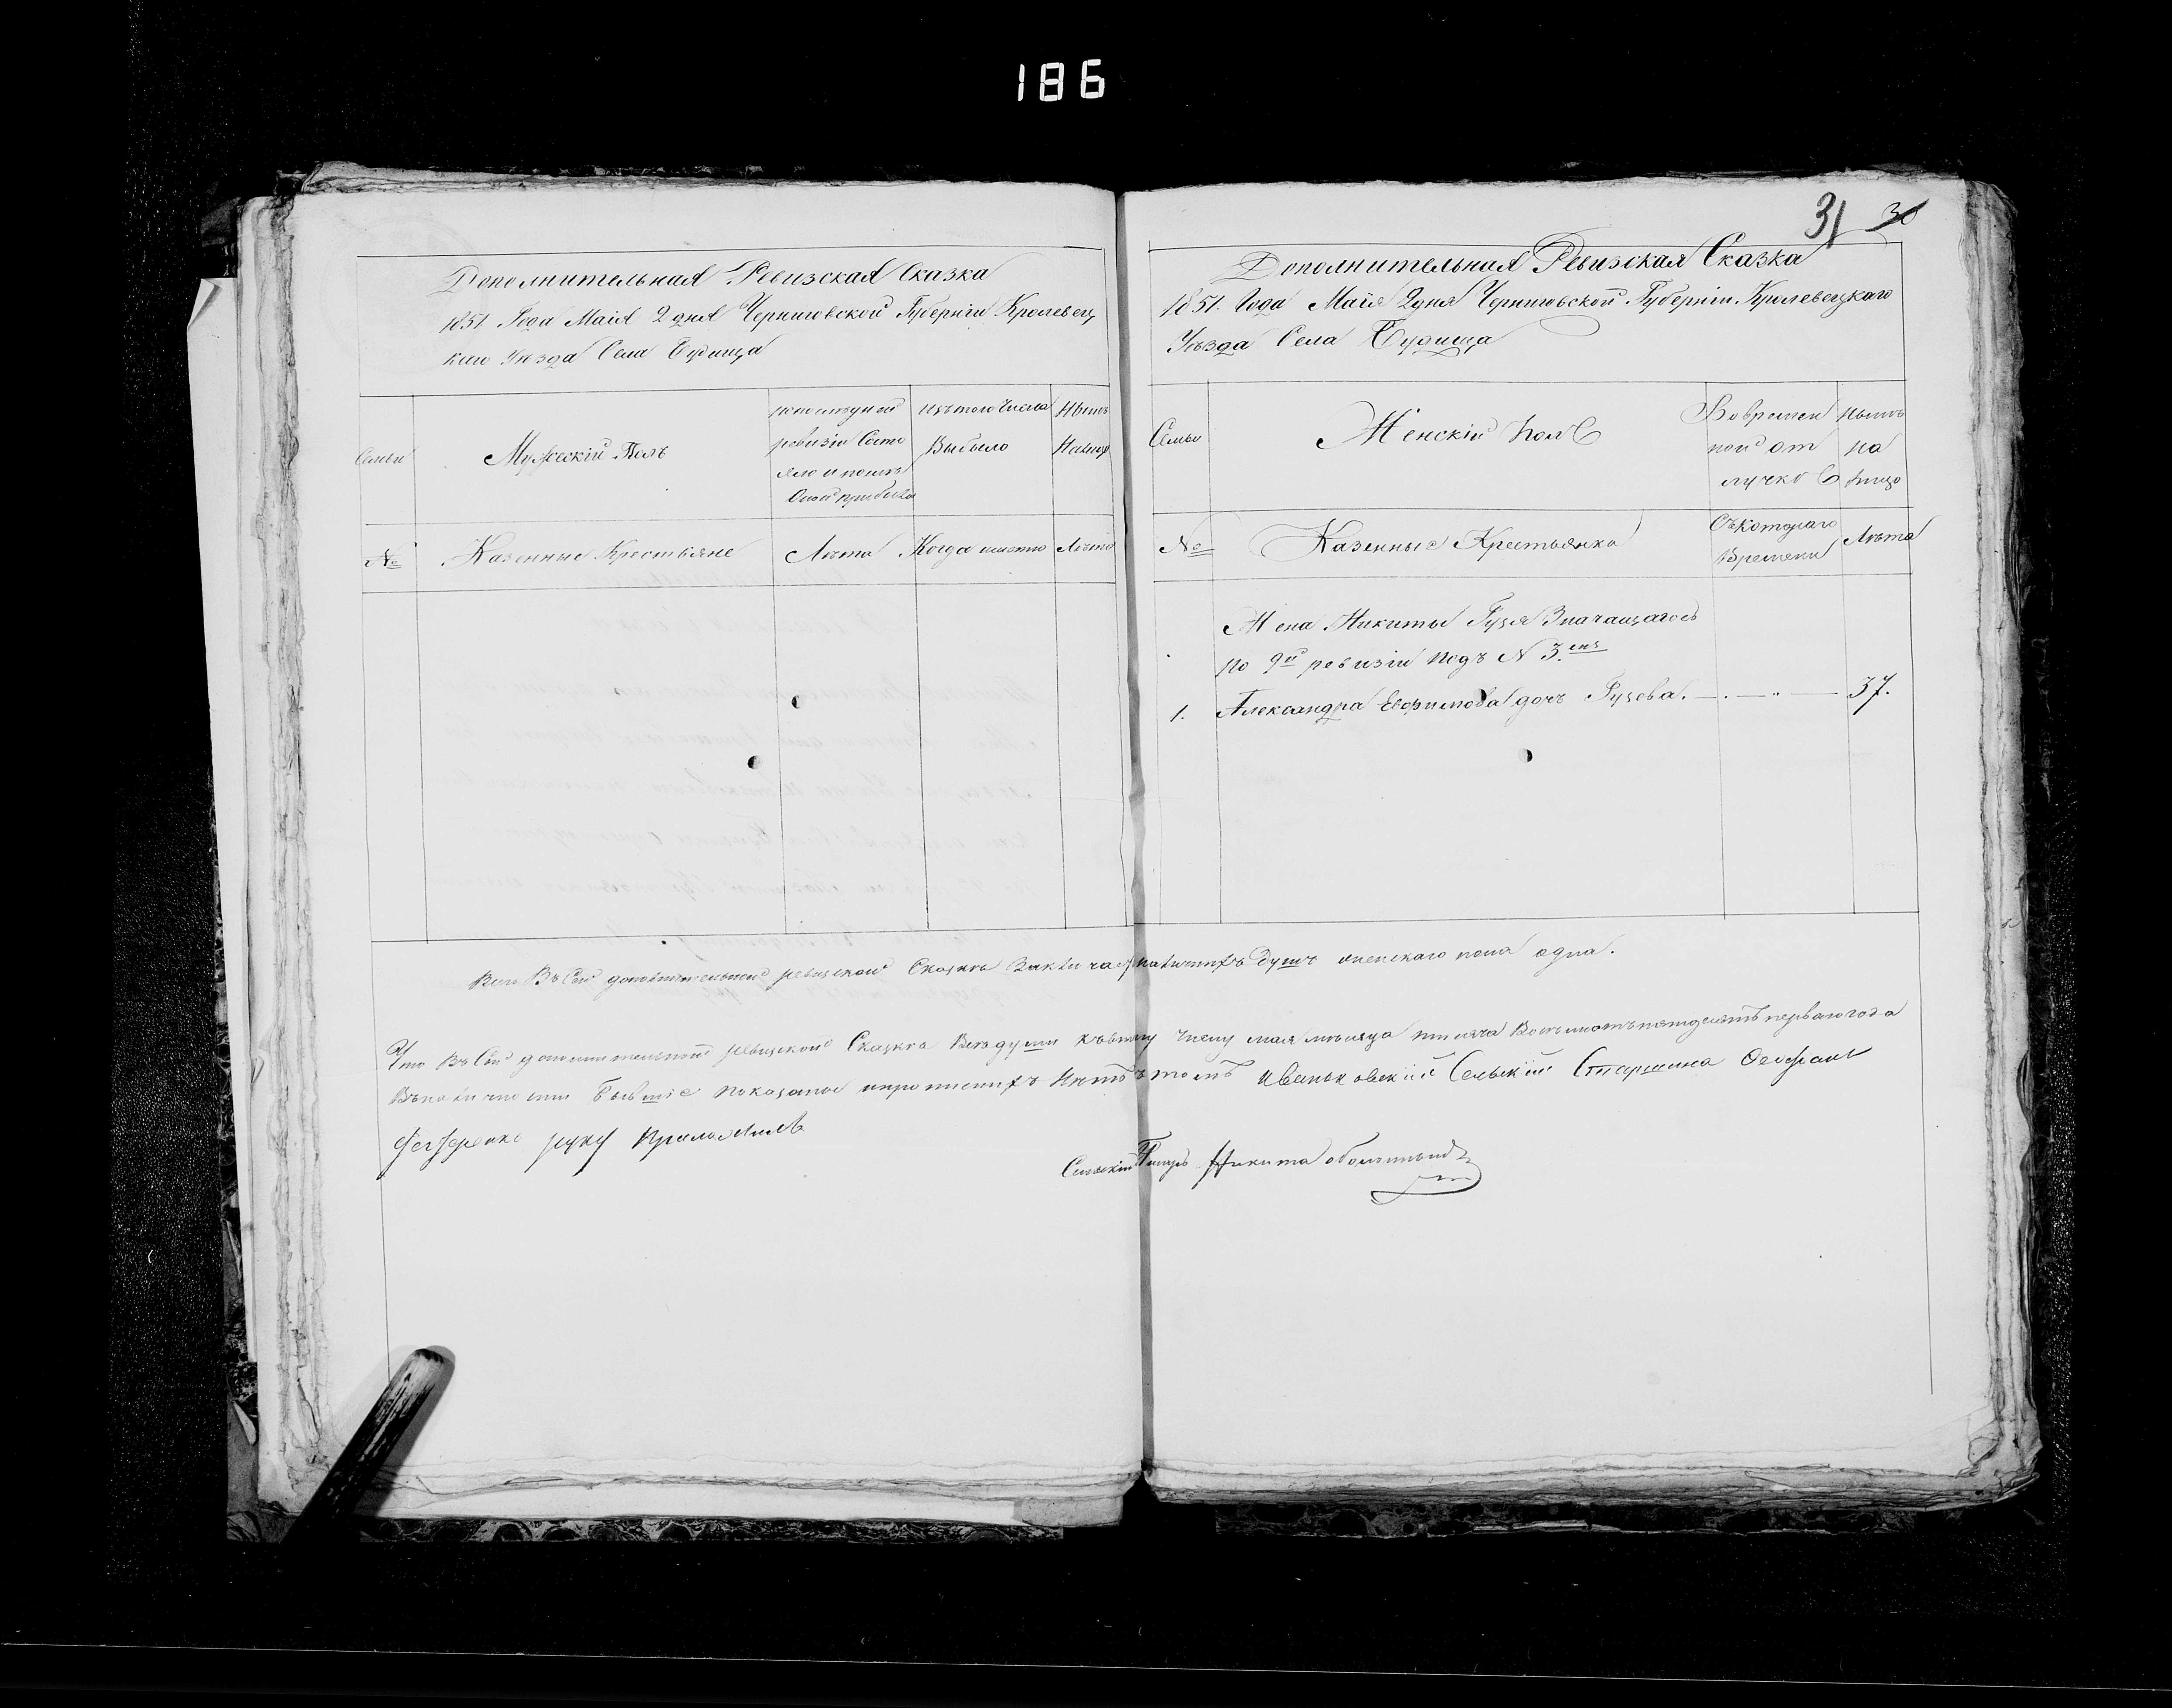 186
31 30
Дополнительная Ревизская Сказка
1851 Года Маія 2 дня Черниговской Губерніи Кролевец
каго Уезда Села Будища
Семьи
Мужескій Полъ
по последней
ревизіи Состо
яло и послѣ
Оной прибыло
Изъ того Числа
Выбыло
Нынѣ
Налицо
№
Казенные Крестьяне
Лѣта
Когда именно
Лѣта
Дополнительная Ревизская Сказка
1851. Года Маія 2 дня Черниговской Губерніи Кролевецкаго
Уѣзда Села Будища
Семьи
Женскій Полъ
Во времен
ной от
лучкѣ
Нынѣ
на
лицо
№
Казенные Крестьянка
Съ котораго
Времени
Лѣта
Жена Никиты Гузя Значащагось
по 9й ревизіи подъ N 3.
1. Александра Евфимова дочь Гузева. 37.
Въ Сей дополнительной ревизской Сказкѣ Заключа наличнихъ душъ женскаго пола одна.
Что Въ Сей дополнительной ревизской Сказкѣ Всѣ души къ второму Числу мая мѣсяца тисяча Восемсотъ пятдесятъ перваго года
Въ наличности Бывшіе показаны и прописнихъ нѣтъ в томъ Иваньковскій Сельскій Старшина
руку Приложилъ
Сельскій Писарь Никита